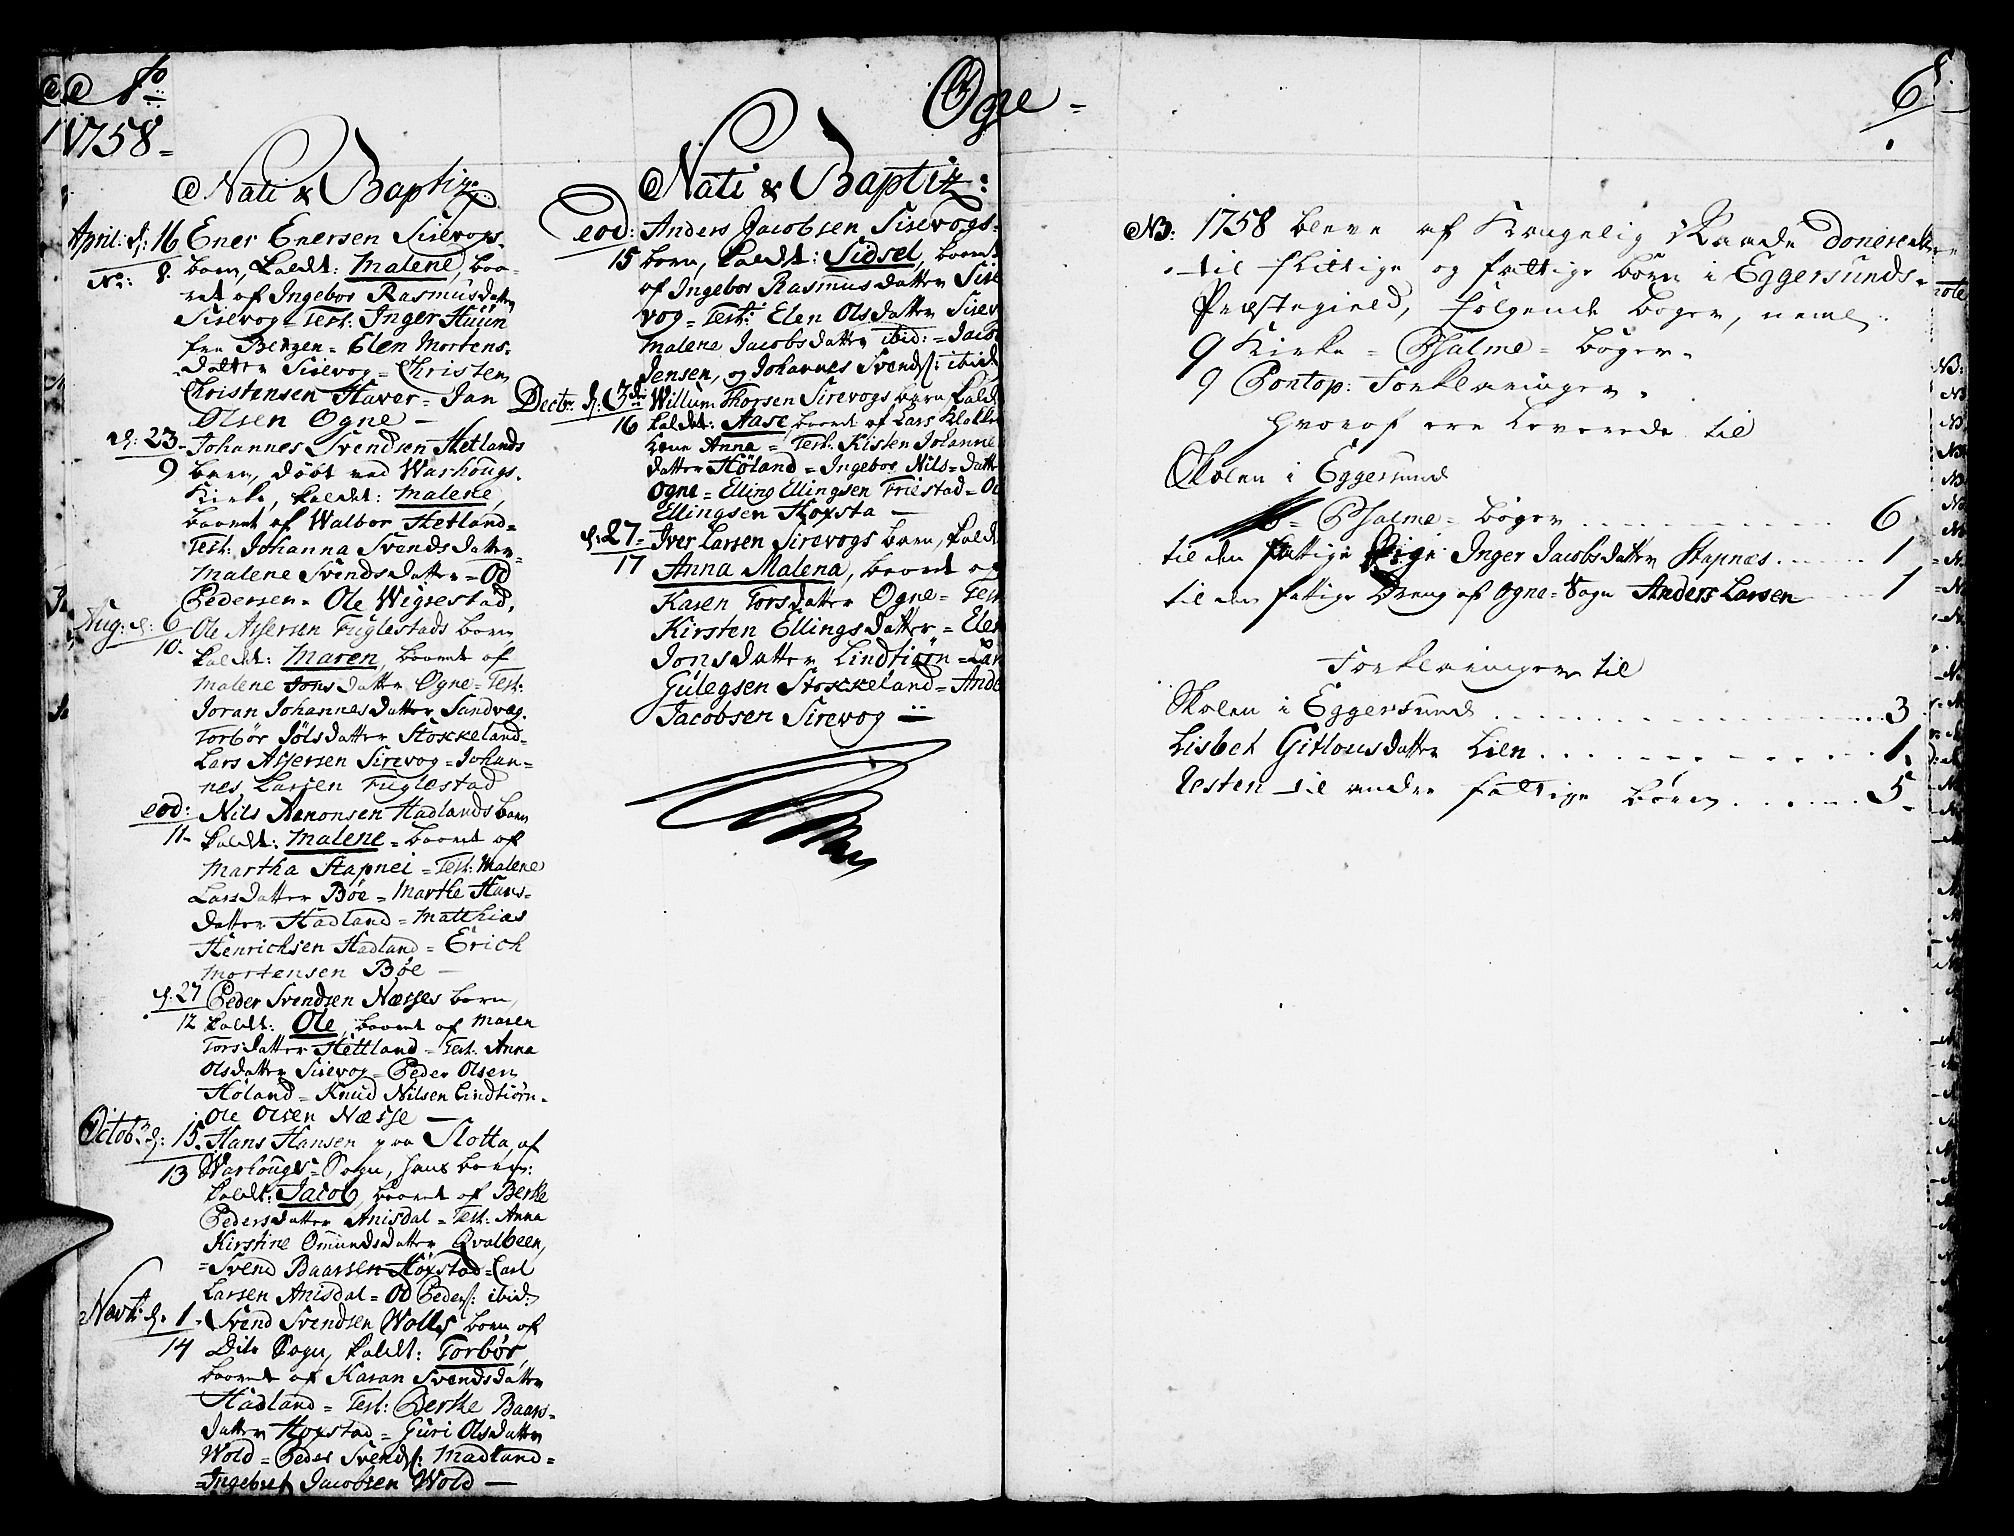 Ao
1758
Ogne
6
Nati & Baptiz:
April: d: 16 Ener Enersen Sirevogs
No: 8. barn, kaldt: Malene, baa-
ret af Ingebor Rasmusdatter
Sirevog = Test: Inger
fra Bergen = Elen Mortens-
datter Sirevog = Christen
Christensen Haver = Jan
Olsen Ogne —
d: 23. Johannes Svendsen Hetlands
9 barn, døbt ved Warhougs
Kirke, kaldt: Malene,
baaret af Walbor Hetland =
Test: Johanna Svendsdatter
Malene Svendsdatter = Od
Pedersen. Ole Wigrestad.
Aug: d: 6 Ole Assersen Fuglestads barn,
10. kaldt: Maren, baaret af
Malene Jonsdatter Ogne = Test:
Joran Johannesdatter Sandvæg.
Torbör Jölsdatter Stokkeland =
Lars Assersen Sirevog = Johan-
nes Larsen Fuglestad
eod: Nils Aanonsen Hadlands barn
11. kaldt: Malene = baaret af
Martha Stapnei = Test: Malene
Larsdatter Bøe = Marthe Hans-
datter Hadland = Matthias
Henrichsen Hadland = Erich
Mortensen Bøe —
d. 27 Peder Svendsen Næsses barn,
12 kaldt: Ole, baaret af Maren
Torsdatter Hettland = Test. Anna
Olsdatter Sirevog = Peder Olsen
Høland = Knud Nilsen Lindtiörn.
Ole Olsen Næsse —
Octobr d: 15. Hans Hansen paa Slotta, af
13 Warhougs = Sogn, hans barn:
kaldt: Jacob, baaret af Berthe
Pedersdatter Anisdal = Test: Anna
Kirstine Omundsdatter Qvalbeen,
= Svend Baarsen Höxstad = Carl
Larsen Anisdal = Od Peders: ibid:
Novbr: d. 1. Svend Svendsen Wolds barn af
14 Dito Sogn, kaldt: Torbør,
baaret af Karan Svendsdatter
Hadland = Test: Berthe Baars-
datter Hoxstad = Guri Olsdatter
Wold = Peder Svends: Madland =
= Ingebret Jacobsen Wold —
Nati & Baptiz:
eod: Anders Jacobsen Sirevogs
15 barn, kaldt: Sidsel, baaret
af Ingebor Rasmusdatter Sire
vog = Test: Elen Olsdatter Sirev
Malene Jacobsdatter ibid: = Jacob
Jensen, og Johannes Svends: ibid
Decbr. d: 3die Willum Thorsen Sirevogs barn kaldt
16 kaldt: Aase, baaret af Lars Klokkers
kone Anna = Test: Kisten Johannes
datter Höland = Ingebor Nils = datter
Ogne = Elling Ellingsen Friestad = Ol
Ellingsen Hoxsta —
d: 27. Iver Larsen Sirevogs barn, kaldt
17 Anna Malena, baaret af
Karen Torsdatter Ogne = Test
Kirsten Ellingsdatter = Elen
Jonsdatter Lindtiørn = Lar
Gulegsen Stokkeland = Ande
Jacobsen Sirevog —
NB: 1758 bleve af Kongelig Naade doneret
til flittige og fattige börn i Eggersunds
Præstegield, følgende bøger, neml:
9 Kirke = Psalme = bøger.
9 Pontop: Forklaringer.
hvoraf ere leverede til
Skolen i Eggersund
Psalme = bøger . . . . . . 6
til den fattige Pige Inger Jacobsdatter Stapnes . . . . 1
til en fattige Dreng af Ogne = Sogn Anders Larsen . . . 1
Forklaringer til
Skolen i Eggersund . . . . . . . . 3
Lisbet Gitlousdatter Lien . . . . . . 1.
Resten til andre fattige börn . . . . . 5.